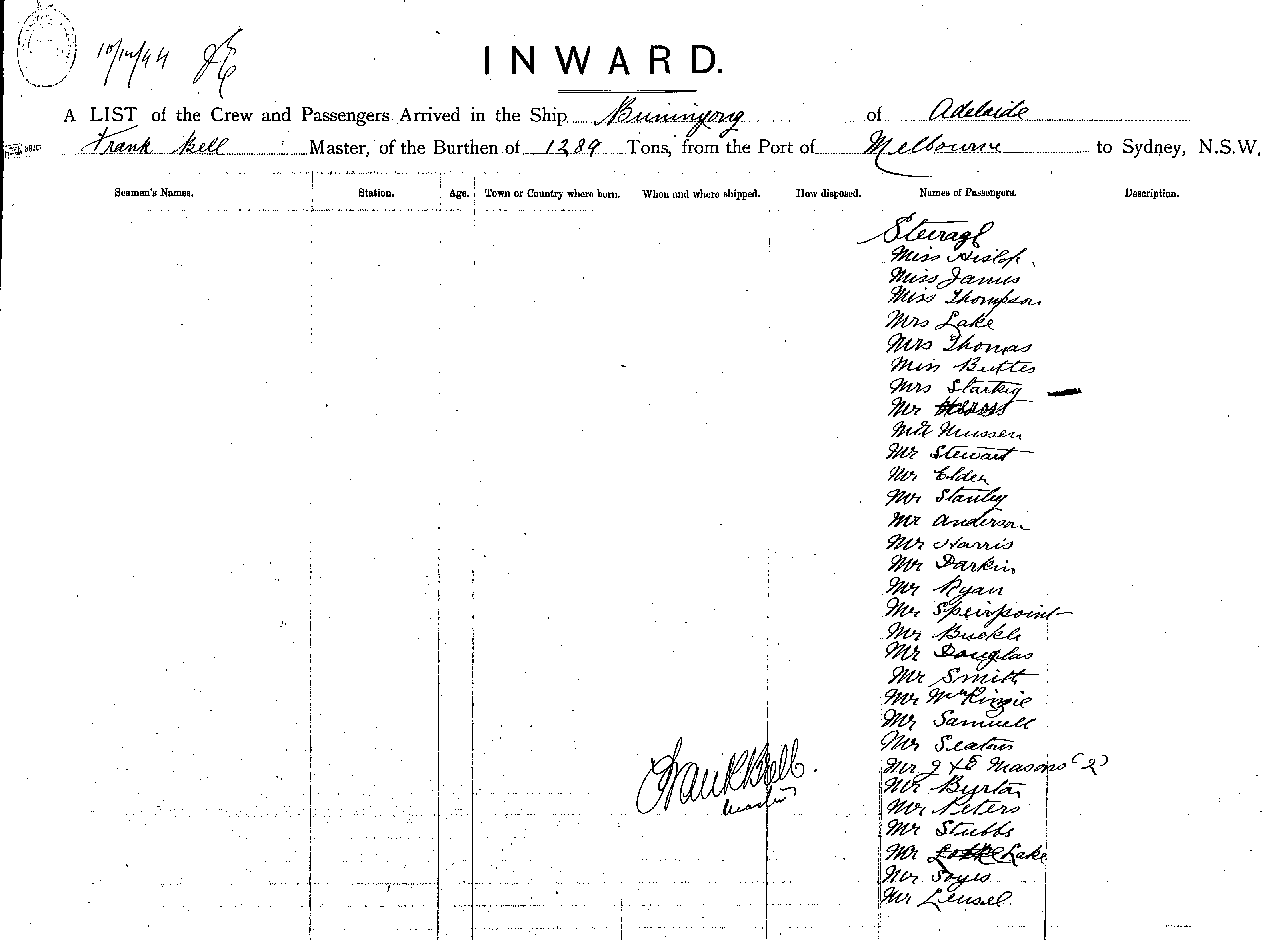 10/12/94
INWARD.
A LIST of the Crew and Passengers Arrived in the Ship Buninyong of Adelaide
Frank Bell Master, of the Burthen of 1289 Tons, from the Port of Melbourne to Sydney, N.S.W.
Seamen's Names. Station. Age. Town or Country where born. When and where shipped. How disposed. Names of Passengers. Description.
Steerage
Miss Hislop
Miss James
Miss Thompson
Mrs Lake
Mrs Thomas
Miss Buttes
Mrs Starkey
Mr
Mr Mussen
Mr Stewart
Mr Elder
Mr Stanley
Mr Anderson
Mr Harris
Mr Darkin
Mr Ryan
Mr Speirpoint
Mr Buckle
Mr Douglas
Mr Smith
Mr McKinzie
Mr Samuell
Mr Seaton
Mr J & E Masons (2)
Mr Burton
Mr Peters
Mr Stubbs
Mr Lake
Mr Soyes
Mr Lensel
Frank Bell.
Master